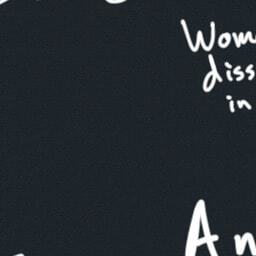 Wom
diss
in
An